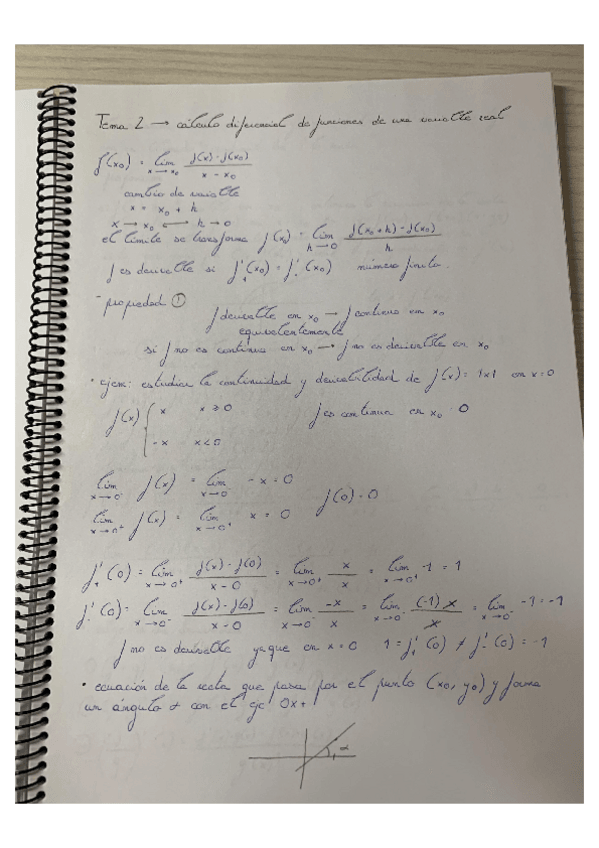 Tema 2 → cálculo diferencial de funciones de una variable real
f'(x₀) = lim x→x₀ f(x)-f(x₀) / x - x₀
cambio de variable
x = x₀ + h
x → x₀ ⟷ h → 0
el límite se transforma f(x₀) = lim h→0 f(x₀+h)-f(x₀) / h
f es derivable si f'₊(x₀) = f'₋(x₀) número finito.
- propiedad ①
f derivable en x₀ → f continua en x₀
equivalentemente
si f no es continua en x₀ → f no es derivable en x₀
· ejem: estudiar la continuidad y derivabilidad de f(x) = |x| en x=0
f(x) { x x≥0 f es continua en x₀ = 0
-x x<0
lim x→0⁻ f(x) = lim x→0 -x = 0 f(0) = 0
lim x→0⁺ f(x) = lim x→0⁺ x = 0
f'₊(0) = lim x→0⁺ f(x)-f(0) / x-0 = lim x→0⁺ x / x = lim x→0⁺ 1 = 1
f'₋(0) = lim x→0⁻ f(x)-f(0) / x-0 = lim x→0⁻ -x / x = lim x→0⁻ (-1)x / x = lim x→0⁻ -1 = -1
f no es derivable ya que en x=0 1 = f'₊(0) ≠ f'₋(0) = -1
· ecuación de la recta que pasa por el punto (x₀, y₀) y forma
un ángulo α con el eje Ox+
α